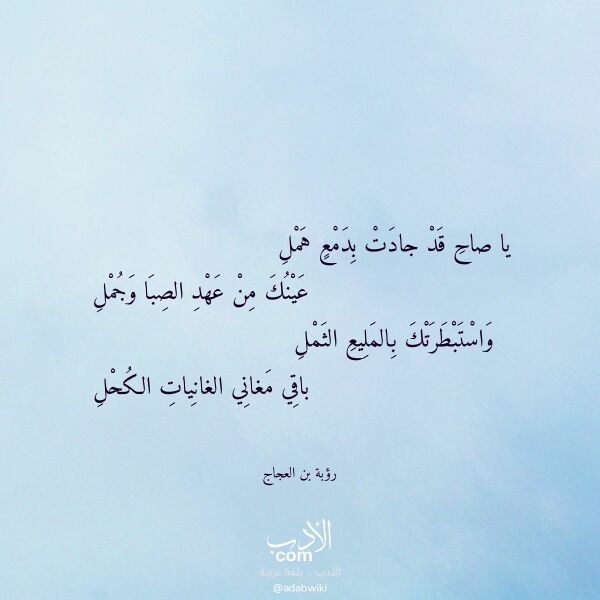 يا صاحِ قَدْ جادَتْ بِدَمْعٍ هَمْلِ
عَيْنُكَ مِنْ عَهْدِ الصِبَا وَجُمْلِ
وَاسْتَبْطَرَتْكَ بِالمَلِيعِ الثَمْلِ
باقِي مَغانِي الغانِياتِ الكُحْلِ
رؤبة بن العجاج
الأدب
com
الأدب .. بلغة عربية
@adabwiki